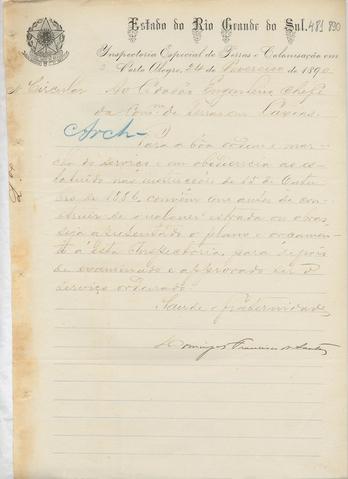 Estado do Rio Grande do Sul. 481 890
Inspectoria Especial de Terras e Colonisação em
Porto Alegre, 24 de Fevereiro de 1890
Circular Ao Cidadão Engenheiro Chefe
da de terras em Caxias
Arch
Para a bôa ordem e mar-
cha do serviço e em obediencia ao es-
tatuido nas instrucções de 15 de Outu-
bro de convém que antes de con-
struir-se qualquer estrada ou obras
seja apresentado o plano e orçamen-
to a esta Inspectoria, para depois
de examinado e approvado ser o
serviço ordenado.
Saude e fraternidade
Domingos Francisco dos Santos